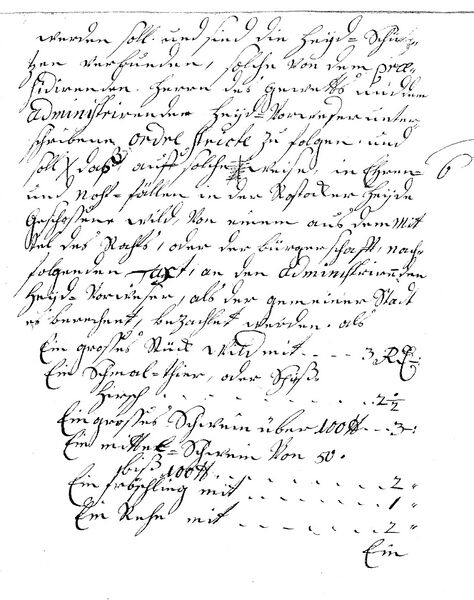 werden soll. und sind die Heyd-Schüt-
zen verbunden, solche von dem præ-
sidirenden Herrn des gewetts und dem
administrirenden Heyd-Vorweser unter-
schriebene Ordel zu folgen. und
soll das auf solche weise, in Ehren-
und Noht-fällen in der Rostocker Heyde
geschossene Wild, Von einem aus dem Mit-
tel des Rahts, oder der bürgerschafft, nach-
folgenden Taxt, an den administrirenden
Heyd-Vorweser, als der gemeiner Stadt
es berechent, bezahlet werden. als
Ein grosses Stück Wild mit - - - - 3 Rθ
Ein Schmal-thier, oder Spieß-
Hirsch - - - - - - 2 1/2
Ein grosses Schwein über 100 ℔ - - 3 "
Ein mittel-Schwein Von 50.
biß 100 ℔ - - - - - 2 "
Ein fröschling mit - - - - - 1 "
Ein Rehe mit - - - - - 2 "
Ein
6